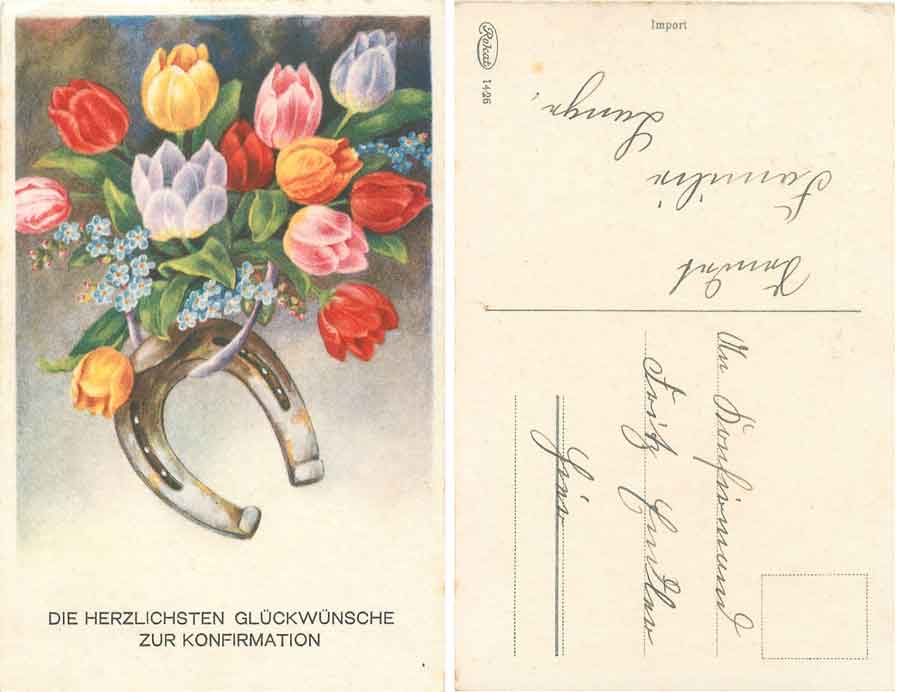 DIE HERZLICHSTEN GLÜCKWÜNSCHE
ZUR KONFIRMATION
Import
Rokat 1426
Familie
Lange,
An Konfirmand
Fritz
hier